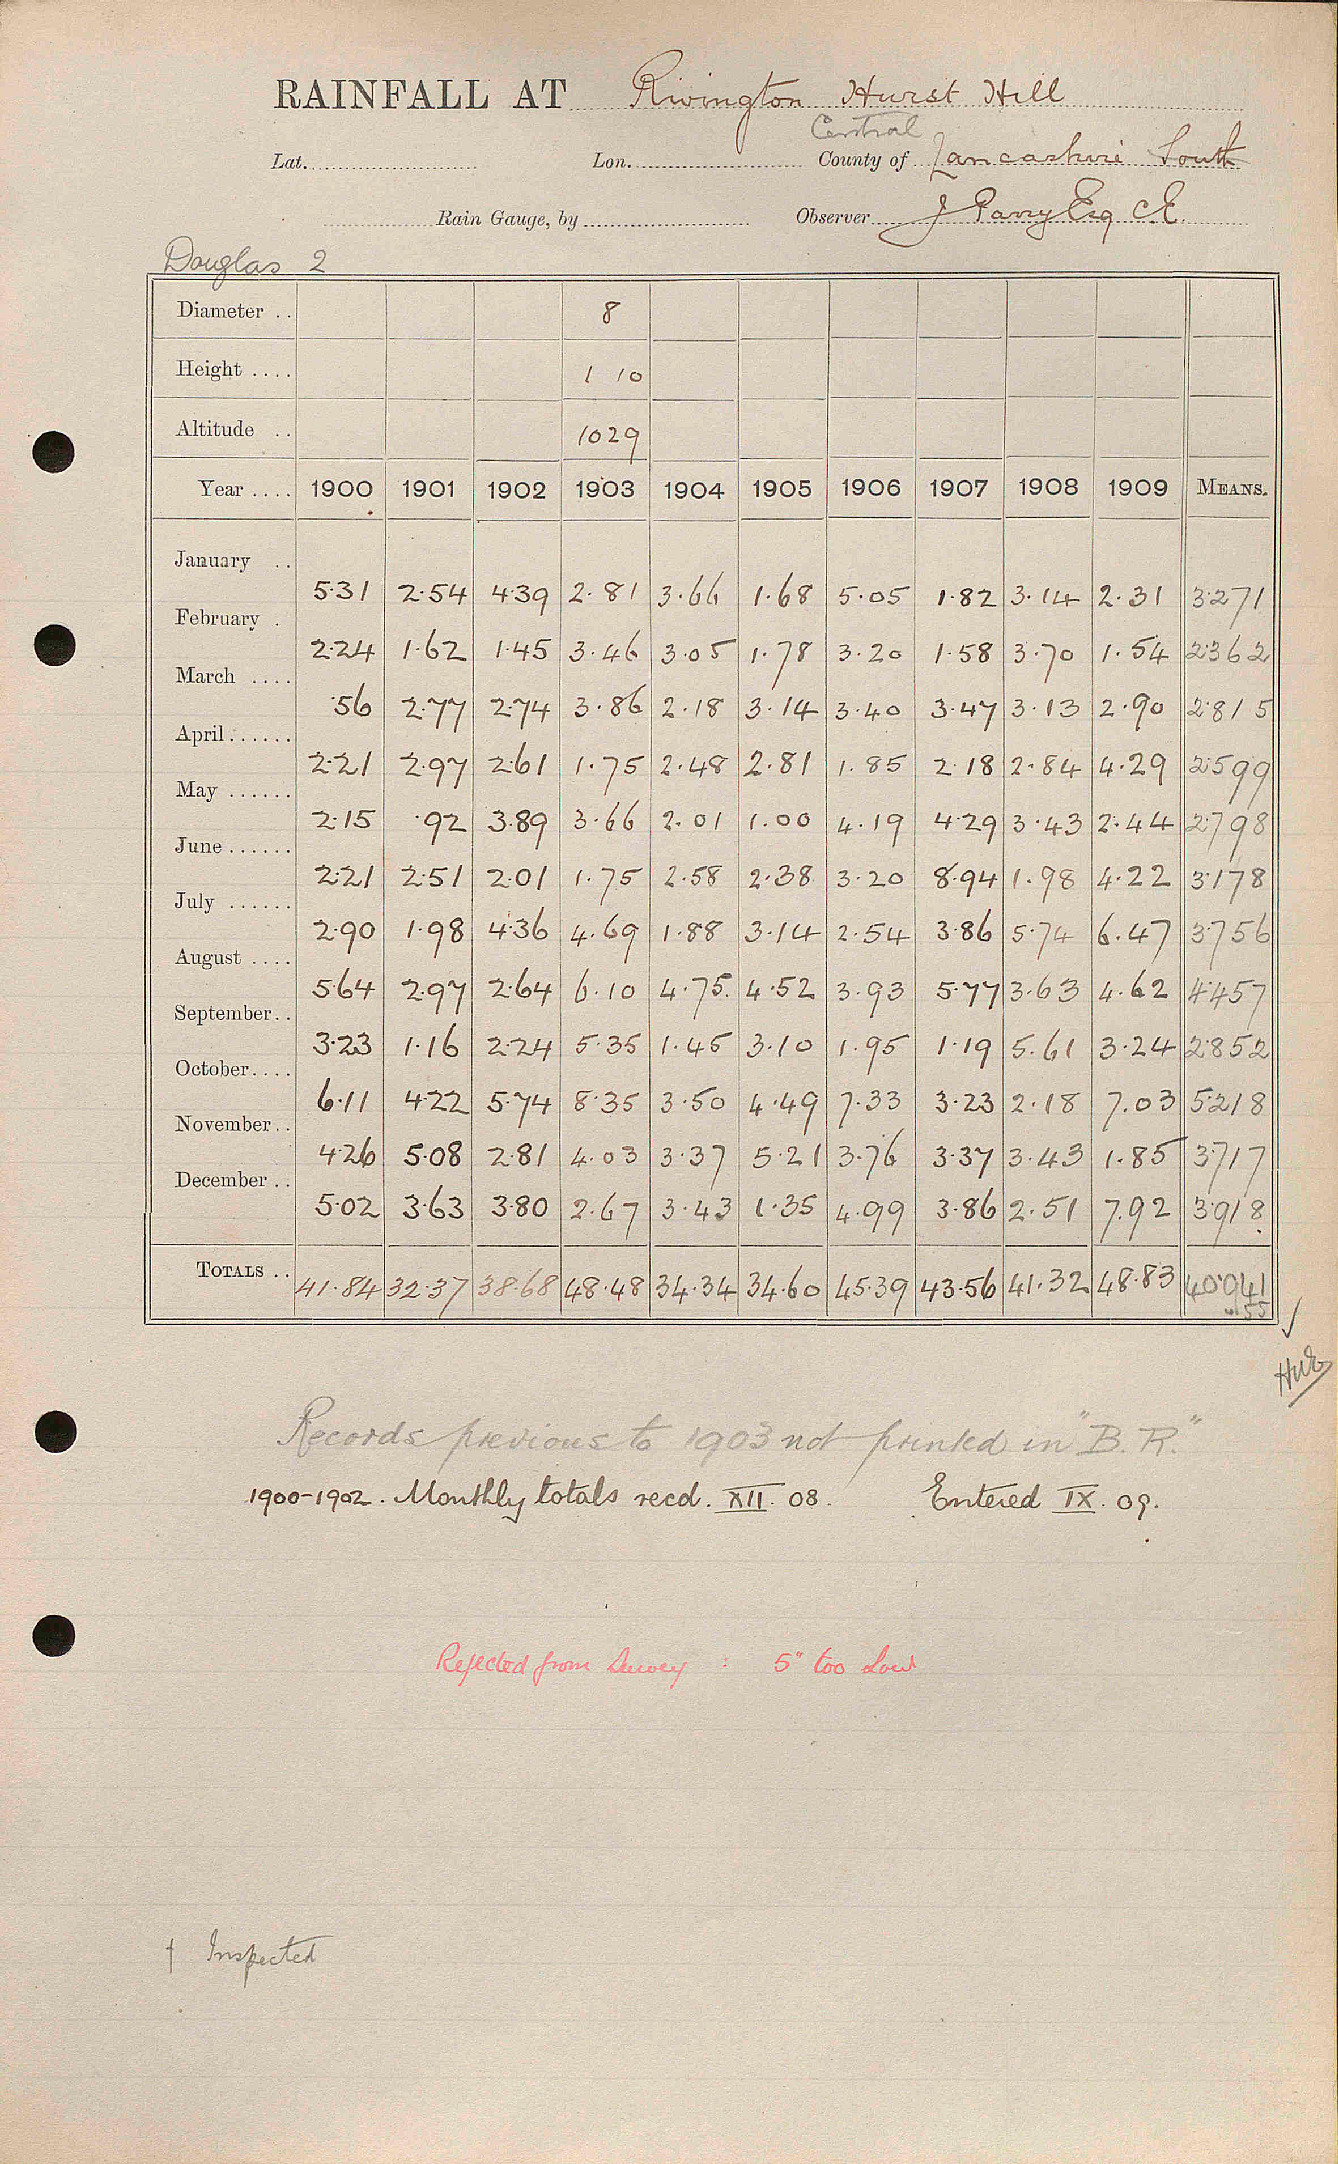 RAINFALL AT Rivington Hurst Hill
Central
Lat. Lon. County of Lancashire South
Rain Gauge, by Observer J Parry Esq CE
Douglas 2
Diameter .. 8
Height .... 1 10
Altitude .. 1029
Year .... 1900 1901 1902 1903 1904 1905 1906 1907 1908 1909 MEANS.
January .. 5.31 2.54 4.39 2.81 3.66 1.68 5.05 1.82 3.14 2.31 3.271
February . 2.24 1.62 1.45 3.46 3.05 1.78 3.20 1.58 3.70 1.54 2.362
March .... .56 2.77 2.74 3.86 2.18 3.14 3.40 3.47 3.13 2.90 2.815
April...... 2.21 2.97 2.61 1.75 2.48 2.81 1.85 2.18 2.84 4.29 2.599
May ...... 2.15 .92 3.89 3.66 2.01 1.00 4.19 4.29 3.43 2.44 2.798
June...... 2.21 2.51 2.01 1.75 2.58 2.38 3.20 8.94 1.98 4.22 3.178
July ...... 2.90 1.98 4.36 4.69 1.88 3.14 2.54 3.86 5.74 6.47 3.756
August .... 5.64 2.97 2.64 6.10 4.75 4.52 3.93 5.77 3.63 4.62 4.457
September.. 3.23 1.16 2.24 5.35 1.45 3.10 1.95 1.19 5.61 3.24 2.852
October.... 6.11 4.22 5.74 8.35 3.50 4.49 7.33 3.23 2.18 7.03 5.218
November.. 4.26 5.08 2.81 4.03 3.37 5.21 3.76 3.37 3.43 1.85 3.717
December .. 5.02 3.63 3.80 2.67 3.43 1.35 4.99 3.86 2.51 7.92 3.918
TOTALS .. 41.84 32.37 38.68 48.48 34.34 34.60 45.39 43.56 41.32 48.83 40.941
Records previous to 1903 not printed in "B.R."
1900-1902. Monthly totals recd. XII. 08. Entered IX. 09.
Rejected from Survey : 5" too low
† Inspected